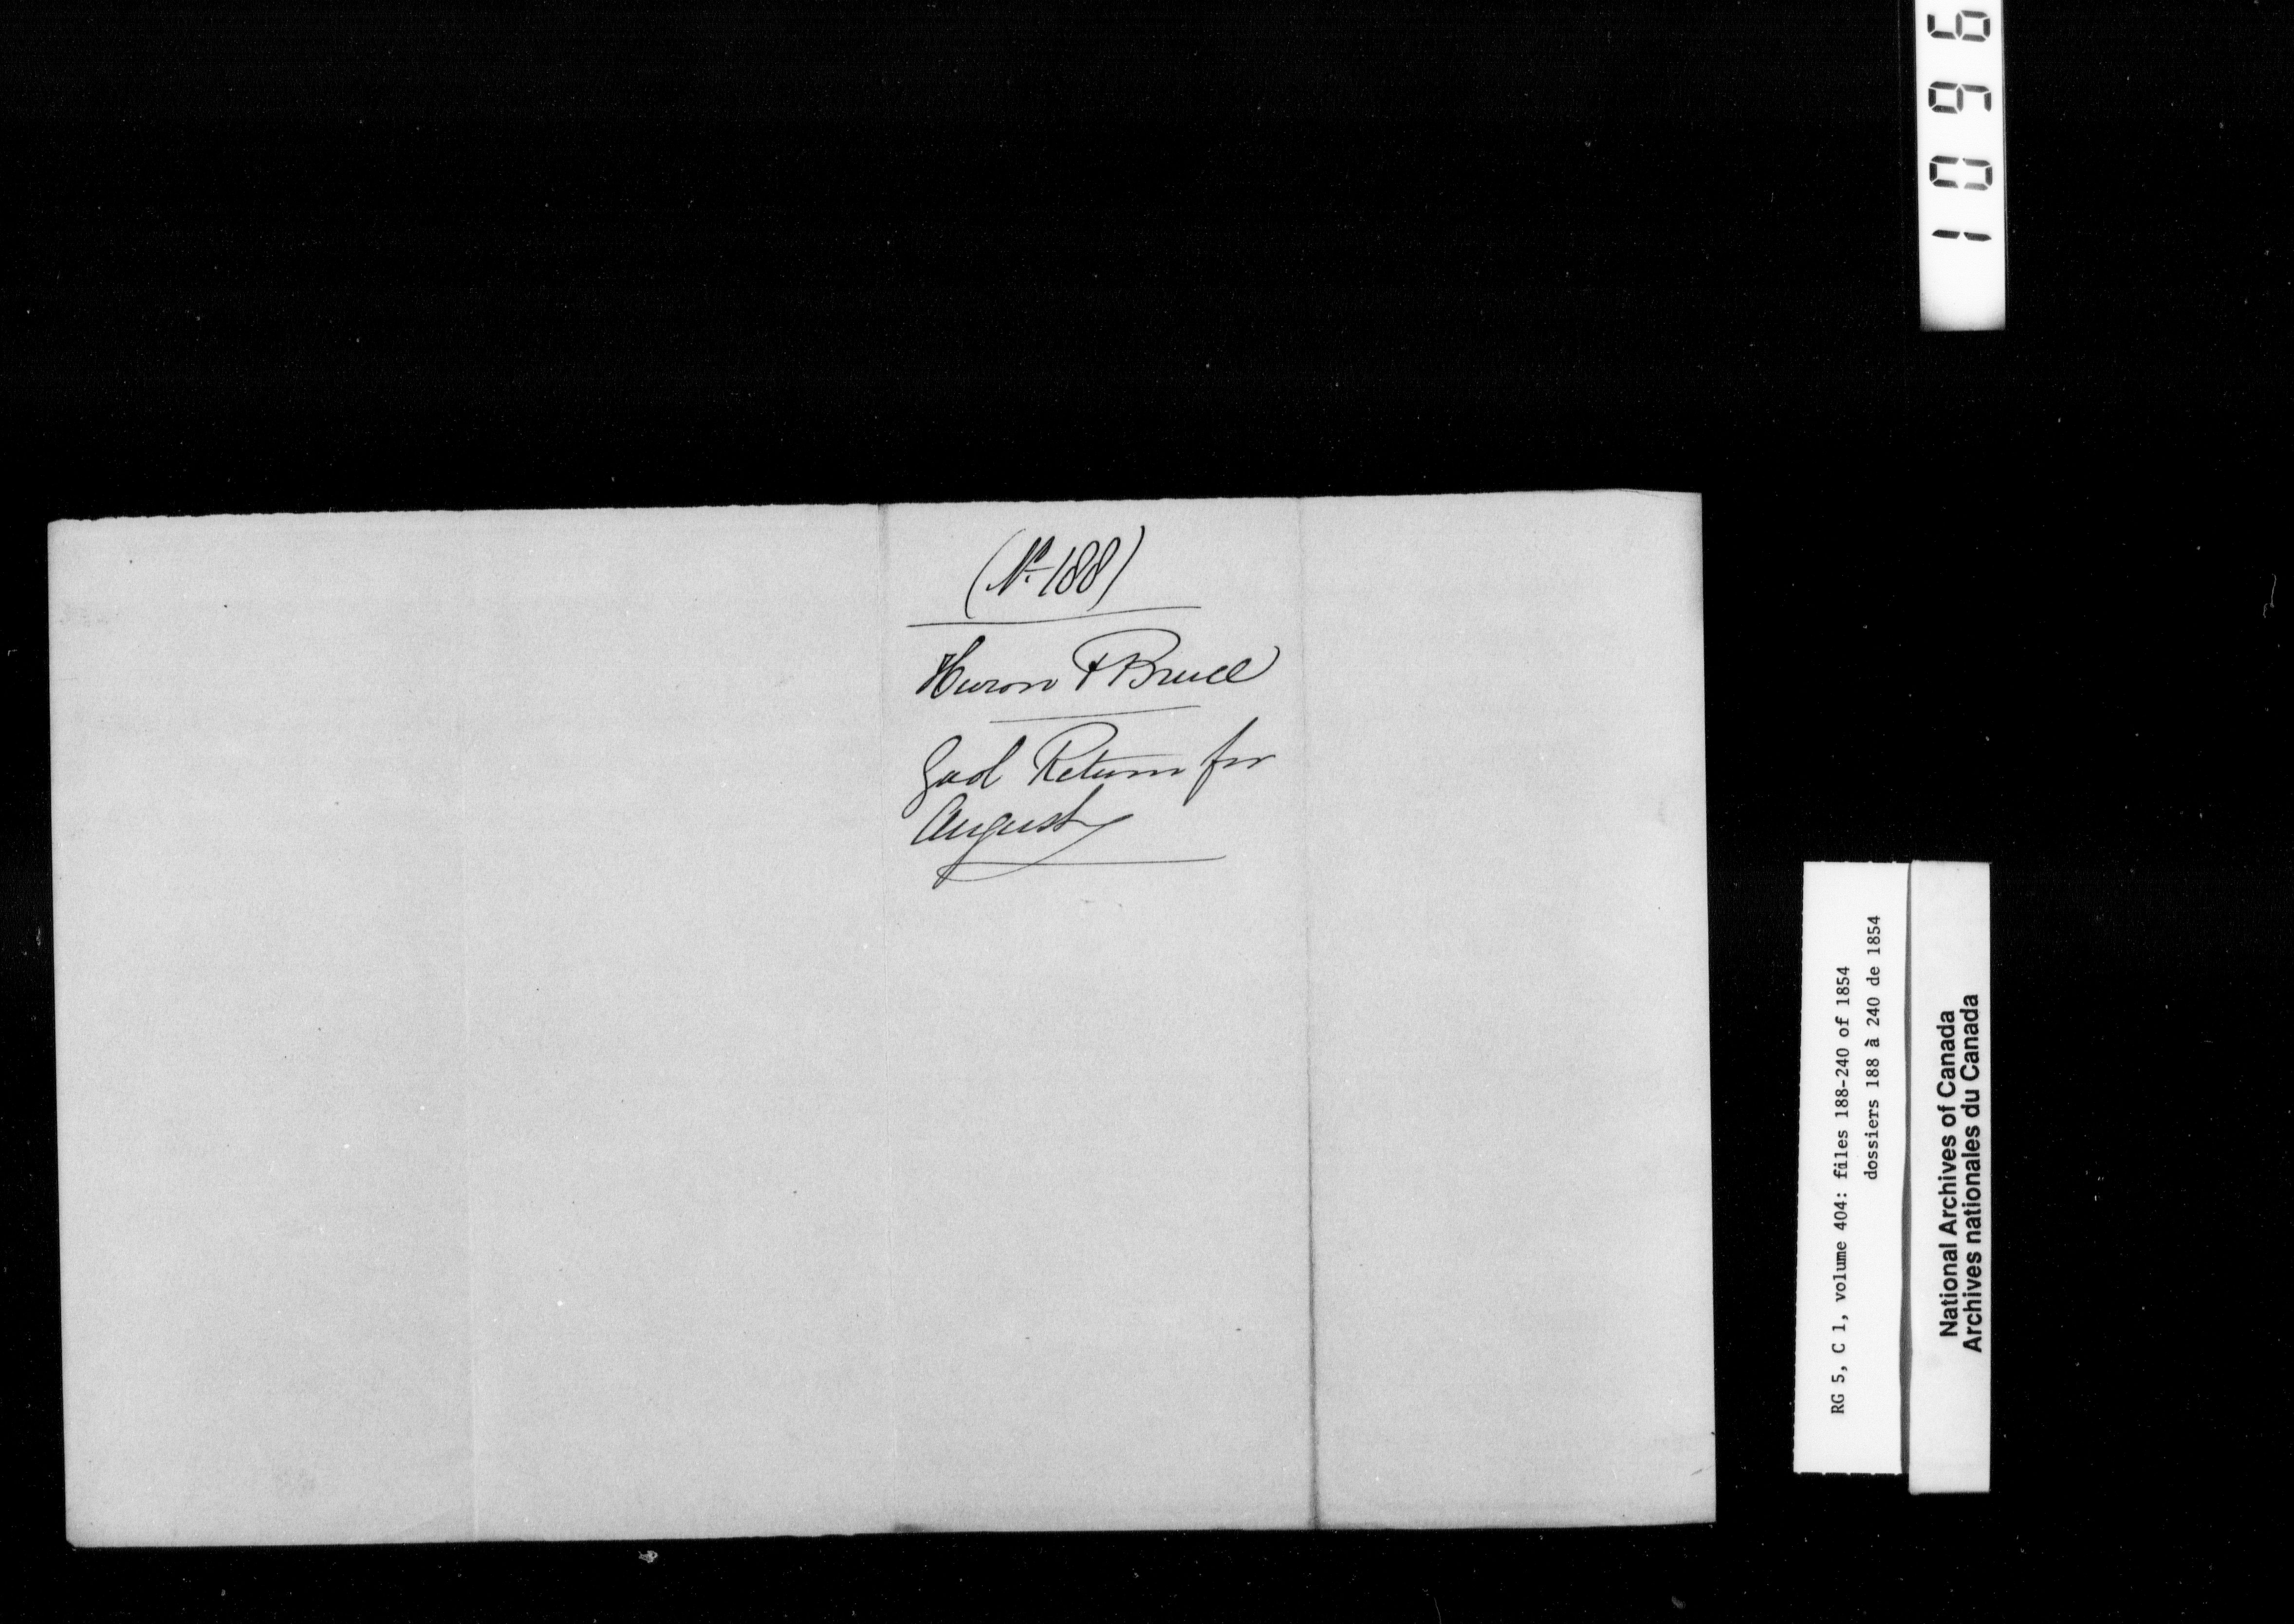 (No 188)
Huron & Bruce
Gaol Return for
August
1096
RG 5, C 1, volume 404: files 188-240 of 1854
dossiers 188 à 240 de 1854
National Archives of Canada
Archives nationales du Canada